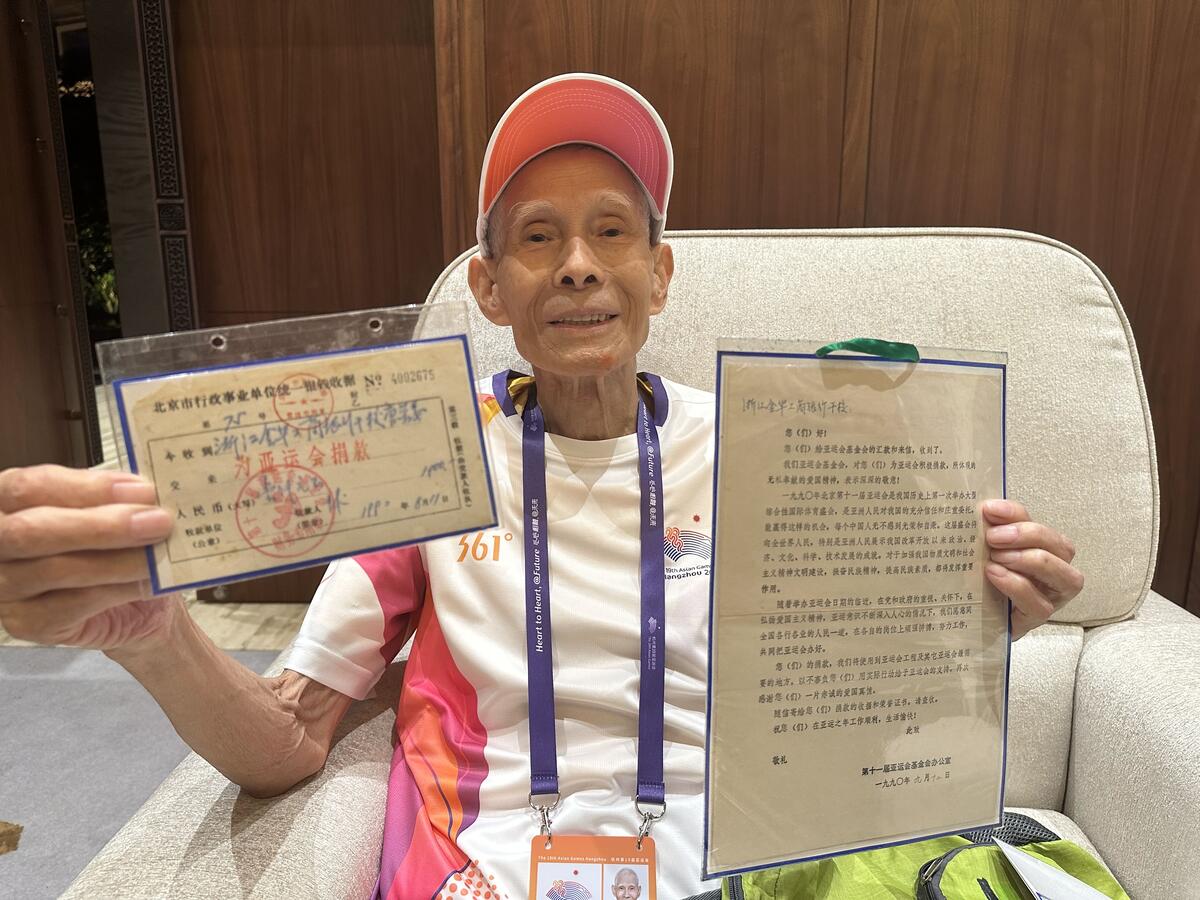 北京市行政事业单位统一银钱收据 Nº 4002675
第 75 号
今收到 浙江金华工商银行干校
为亚运会捐款
交来
人民币(大写)
收款单位
(公章)
收款人
(签章)
1990 年 8 月 11 日
361°
Heart to Heart, @Future 心心相融, @未来
19th Asian Games
The 19th Asian Games Hangzhou 杭州第19届亚运会
浙江金华工商银行干校
您(们)好!
您(们)给亚运会基金会的汇款和来信,收到了。
我们亚运基金会,对您(们)为亚运会积极捐款,所体现的
无私奉献的爱国精神,表示深深的敬意!
一九九〇年北京第十一届亚运会是我国历史上第一次举办大型
综合性国际体育盛会,是亚洲人民对我国的充分信任和庄重委托,
能赢得这样的机会,每个中国人无不感到光荣和自豪。这届盛会将
向全世界人民,特别是亚洲人民展示我国改革开放以来政治、经
济、文化、科学、技术发展的成就。对于加强我国物质文明和社会
主义精神文明建设,振奋民族精神,提高民族素质,都将发挥重要
作用。
随着举办亚运会日期的临近,在党和政府的重视、关怀下,在
弘扬爱国主义精神,亚运意识不断深入人心的情况下,我们愿意同
全国各行各业的人民一道,在各自的岗位上顽强拼搏,努力工作,
共同把亚运会办好。
您(们)的捐款,我们将使用到亚运会工程及其它亚运会最需
要的地方。以不辜负您(们)用实际行动给予亚运会的支持,再次
感谢您(们)一片赤诚的爱国真情。
随信寄给您(们)捐款的收据和荣誉证书,请查收。
祝您(们)在亚运之年工作顺利,生活愉快!
此致
敬礼
第十一届亚运会基金会办公室
一九九〇年 九 月 十二 日